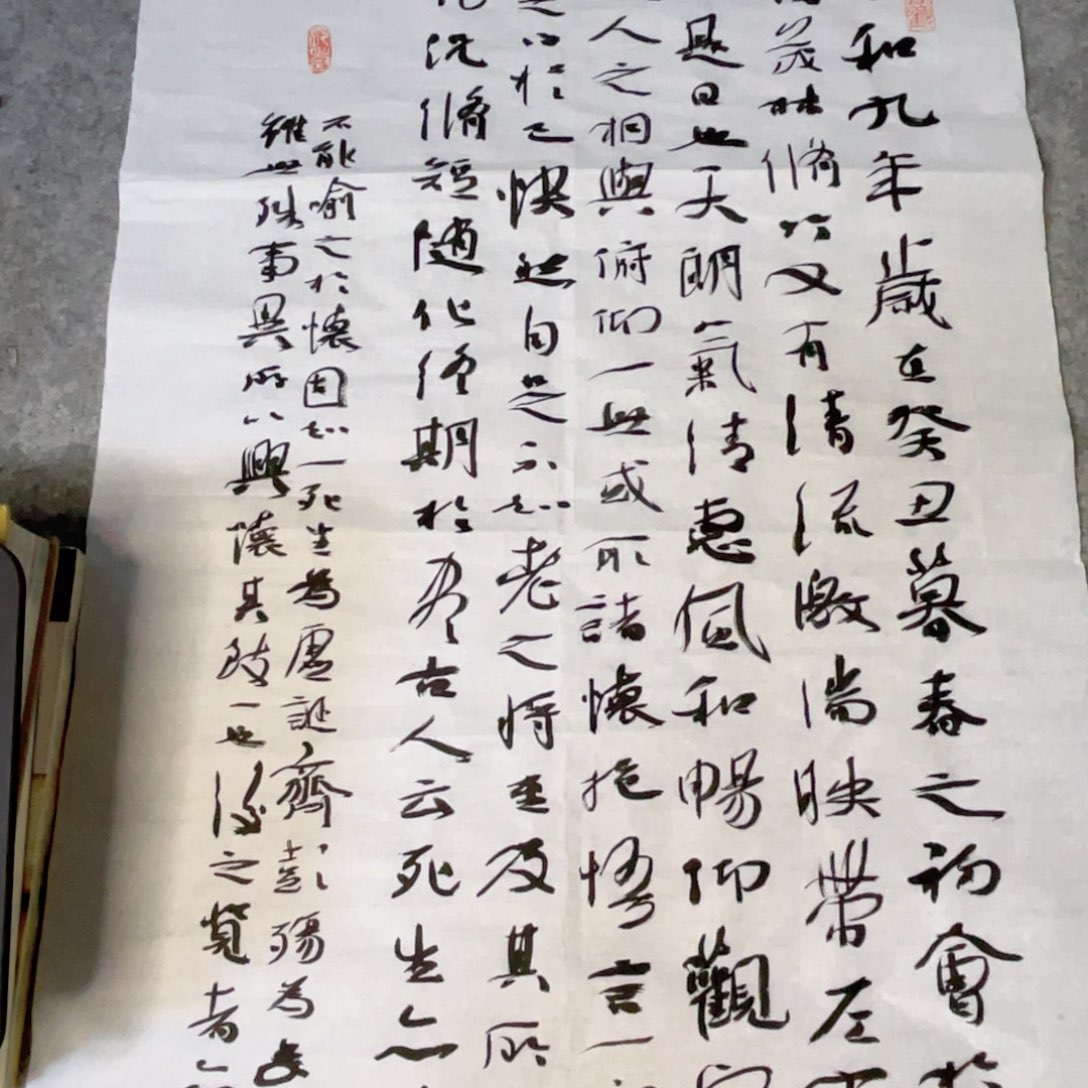 和九年歲在癸丑暮春之初會於
茂林脩竹又有清流激湍映帶左
是日也天朗氣清惠風和暢仰觀宇
人之相與俯仰一世或取諸懷抱悟言一
之於己快然自足不知老之將至及其所
況脩短隨化終期於盡古人云死生亦
不能喻之於懷固知一死生為虛誕齊彭殤為妄
雖世殊事異所以興懷其致一也後之覽者